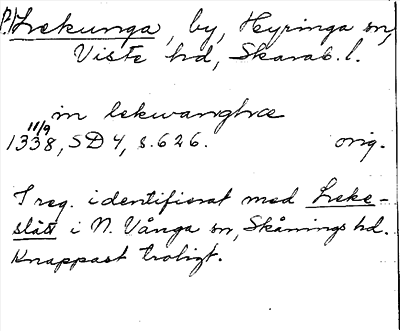 P.) Lekunga, by, Hyringa sn,
Viste hd, Skarab. l.
in lekwanghæ
11/9
1338, SD 4, s. 626. orig.
I reg. identifierat med Leke-
slätt i N. Vånga sn, Skånings hd.
Knappast troligt.